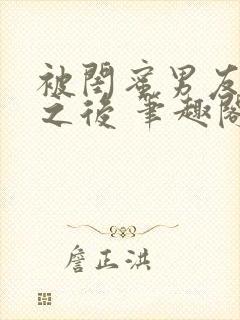 被閨蜜男友
之後 筆趣閣
詹正洪